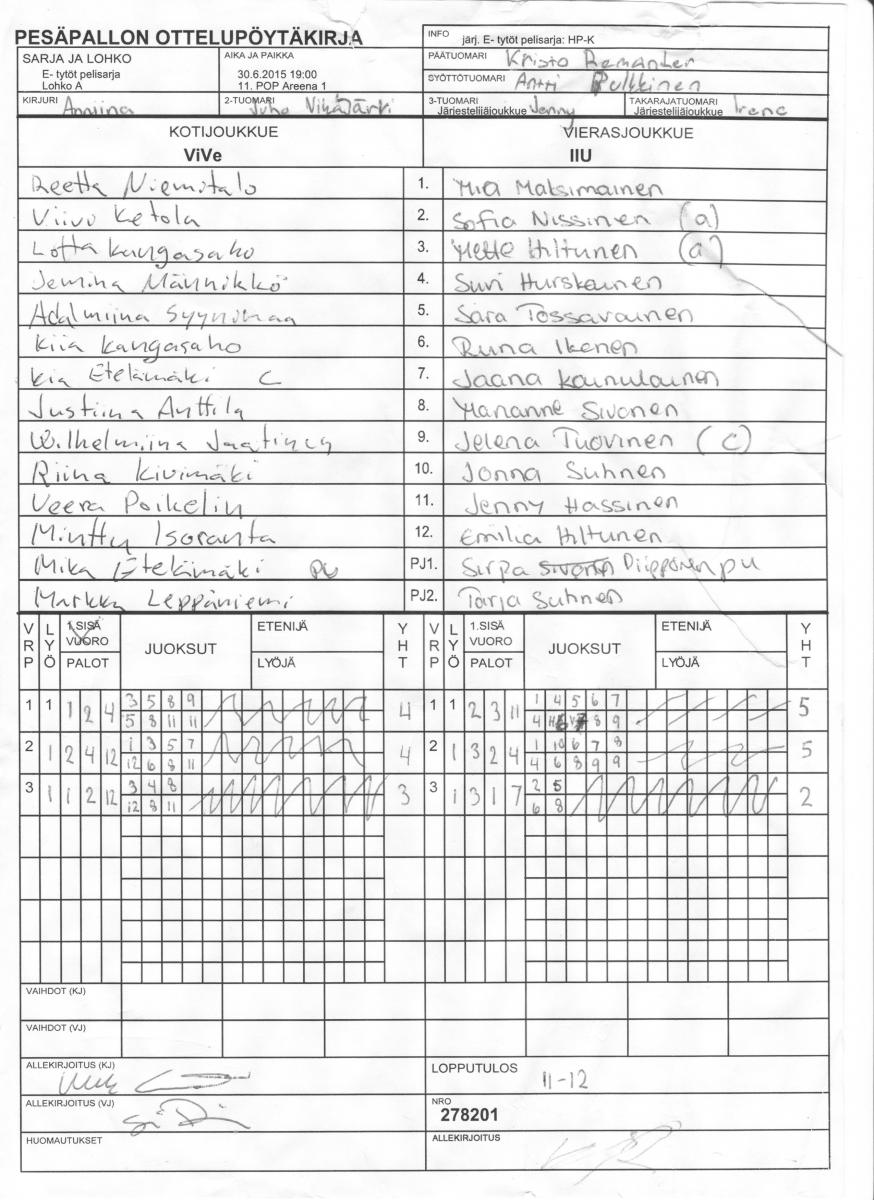 PESÄPALLON OTTELUPÖYTÄKIRJA
INFO järj. E- tytöt pelisarja: HP-K
SARJA JA LOHKO
E- tytöt pelisarja
Lohko A
AIKA JA PAIKKA
30.6.2015 19:00
11. POP Areena 1
PÄÄTUOMARI Kristo
SYÖTTÖTUOMARI Antti Pulkkinen
KIRJURI Anniina
2-TUOMARI Juho
3-TUOMARI Järjestelijäjoukkue Jenny
TAKARAJATUOMARI Järjestelijäjoukkue Irene
KOTIJOUKKUE
ViVe
VIERASJOUKKUE
IIU
Reetta Niemitalo 1. Mia Matsimainen
Viivi Ketola 2. Sofia Nissinen (a)
Lotta Kangasaho 3. Mette Hiltunen (a)
Jemina Männikkö 4. Suvi Hurskainen
Adalmiina 5. Sara Tossavainen
Kiia Kangasaho 6. Runa Ikonen
Kia Etelämäki C 7. Jaana Kainulainen
Justiina Anttila 8. Marianne Sivonen
Wilhelmiina Jaatinen 9. Jelena Tuovinen (C)
Riina Kivimäki 10. Jonna Suhnen
Veera Poikelin 11. Jenny Hassinen
Minttu Isoranta 12. Emilia Hiltunen
Mika Etelämäki PU PJ1. Sirpa Piipponen pu
Markku Leppäniemi PJ2. Tarja Suhnen
VRP LYÖ 1.SISÄ VUORO PALOT JUOKSUT ETENIJÄ LYÖJÄ YHT VRP LYÖ 1.SISÄ VUORO PALOT JUOKSUT ETENIJÄ LYÖJÄ YHT
1 1 1 2 4 3 5 8 9 4 1 1 2 3 11 1 4 5 6 7 5
5 8 11 11 4 8 9
2 1 2 4 12 1 3 5 7 4 2 1 3 2 4 1 10 6 7 8 5
12 6 8 11 4 6 8 9 9
3 1 1 2 12 3 4 8 3 3 1 3 1 7 2 5 2
12 8 11 6 8
VAIHDOT (KJ)
VAIHDOT (VJ)
ALLEKIRJOITUS (KJ)
LOPPUTULOS 11-12
ALLEKIRJOITUS (VJ)
NRO
278201
HUOMAUTUKSET
ALLEKIRJOITUS